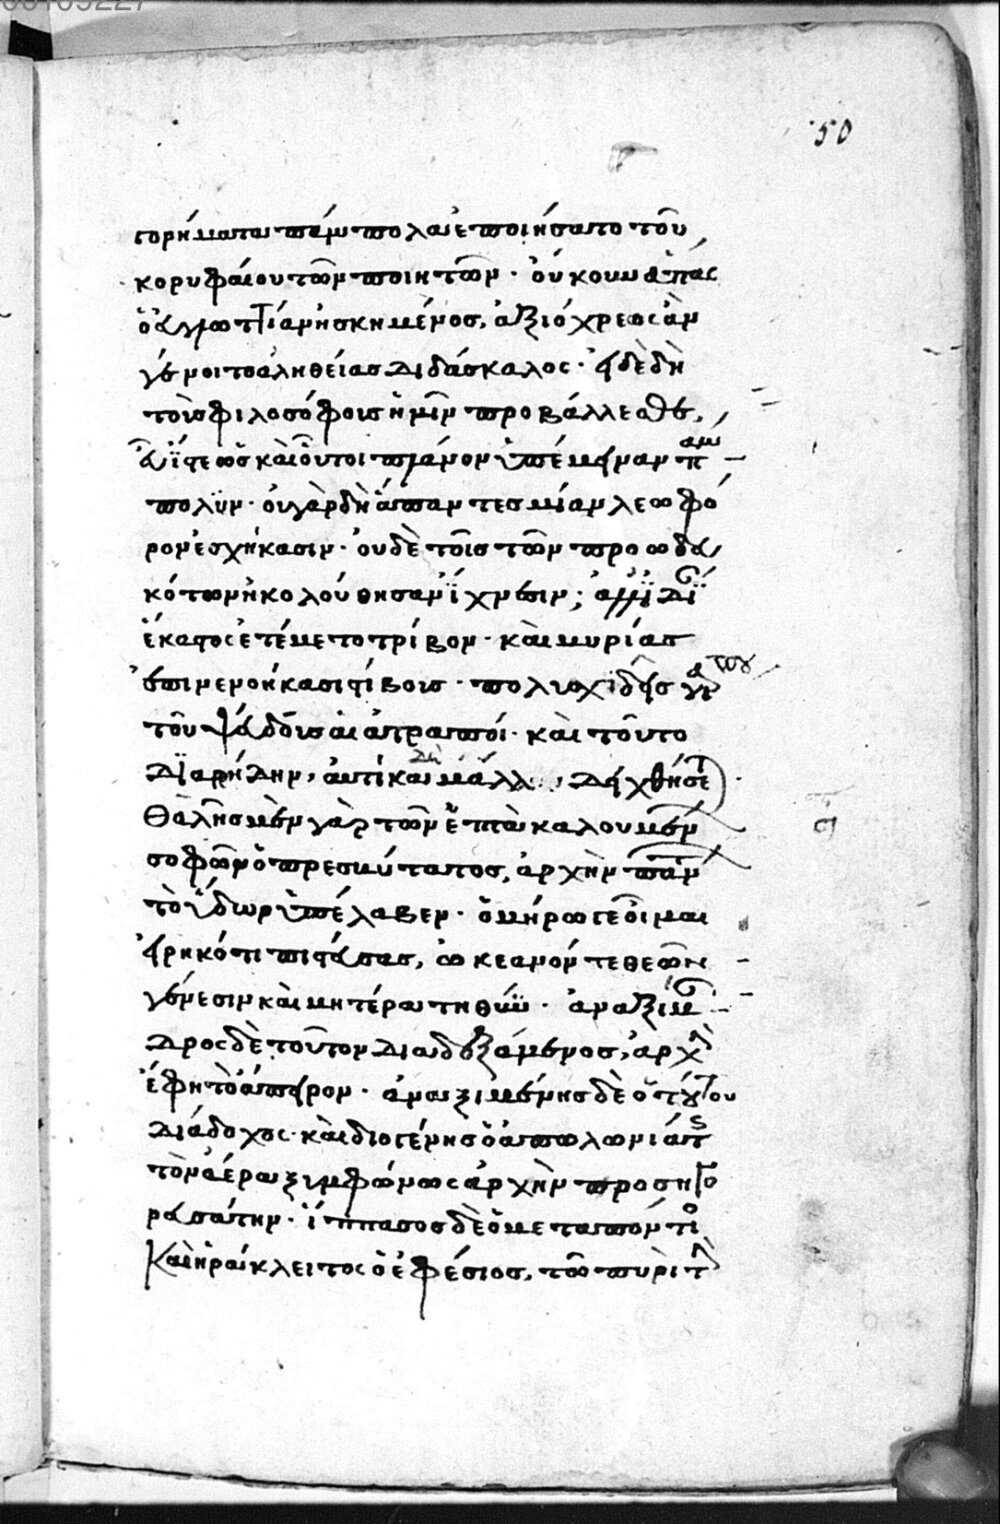 50
γορήματα πάμπολλα ἐποιήσατο τοῦ
κορυφαίου τῶν ποιητῶν. οὐκοῦν ἅπας
ὁ ἀγῶσι ἐνησκημένος, ἀξιόχρεως ἂν
γένοιτο ἀληθείας διδάσκαλος. εἰ δὲ δὴ
τοὺς φιλοσόφους ἡμῖν προβάλλεσθε,
ἀλλ' ἴστε ὡς καὶ οὗτοι πλάνον ὑπέμειναν παμ
πολὺν. οὐ γὰρ δὴ ἅπαντες μίαν λεωφό
ρον ἐσχήκασιν. οὐδὲ τοῖς τῶν προωδευ
κότων ἠκολούθησαν ἴχνεσιν; ἀλλ' ἰδίαν
ἕκαστος ἐτέμετο τρίβον. καὶ μυρίας
ἐπινενοήκασι τρίβους. πολυσχιδεῖς γὰρ
τοῦ ψεύδους αἱ ἀτραποί. καὶ τοῦτο
διαρρήδην, αὐτίκα δὴ μάλα δειχθήσεται.
Θαλῆς μὲν γὰρ τῶν ἑπτὰ καλουμένων
σοφῶν ὁ πρεσβύτατος, ἀρχὴν πάντων
τὸ ὕδωρ ὑπέλαβεν. ὁμήρω γε οἶμαι
εἰρηκότι πιστεύσας, ὠκεανόν τε θεῶν
γένεσιν καὶ μητέρα τηθύν. ἀναξίμαν
δρος δὲ τοῦτον διαδεξάμενος, ἀρχὴν
ἔφη τὸ ἄπειρον. ἀναξιμένης δὲ ὁ τούτου
διάδοχος. καὶ διογένης ὁ ἀπολλωνιάτης
τὸν ἀέρα ξυμφώνως ἀρχὴν προσηγό
ρευσάτην. ἵππασος δὲ ὁ μεταποντῖνος
καὶ ἡράκλειτος ὁ ἐφέσιος, τῶ πυρὶ τὴν